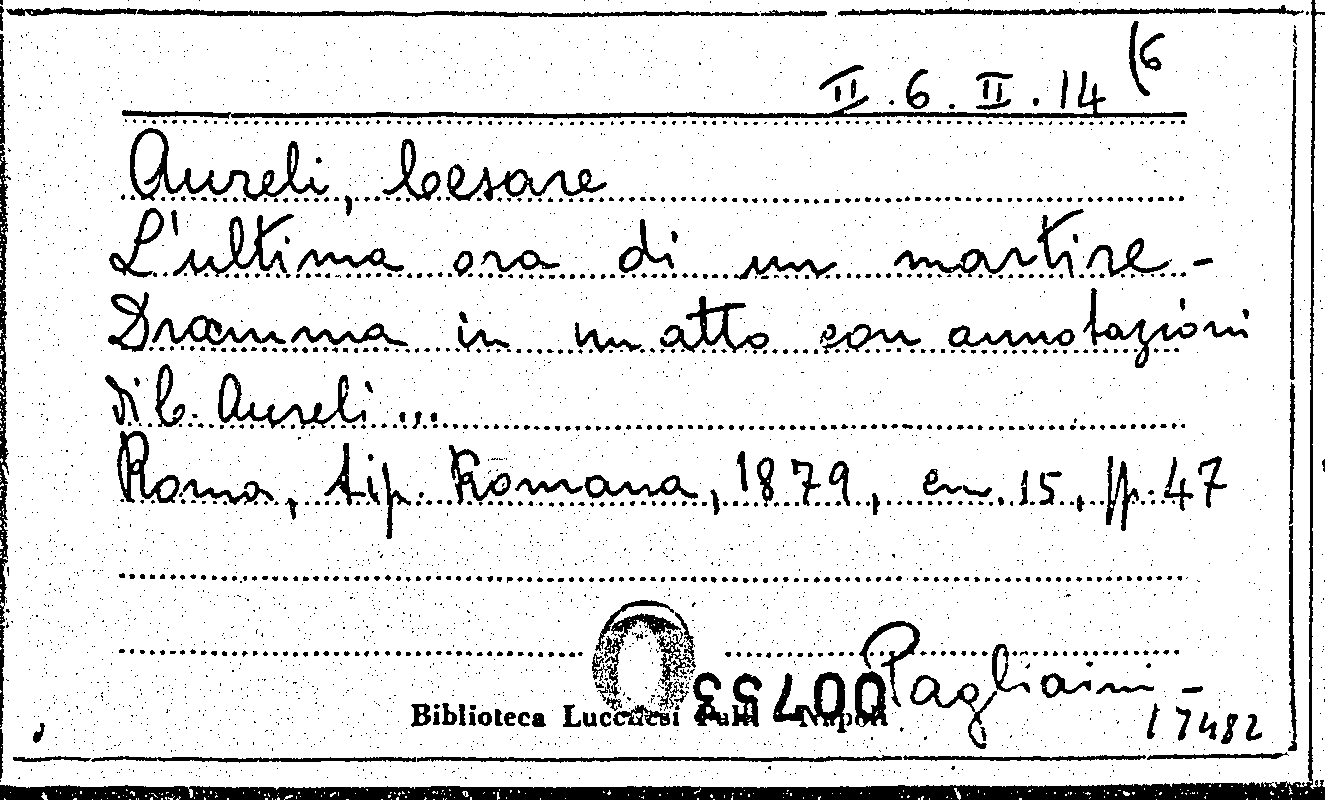 II.6.II.14 (6
Aureli, Cesare
L'ultima ora di un martire -
Dramma in un atto con annotazioni
di C. Aureli...
Roma, tip. Romana, 1879, cm. 15, pp. 47
Pagliaini -
Biblioteca Lucchesi Palli Napoli
17482